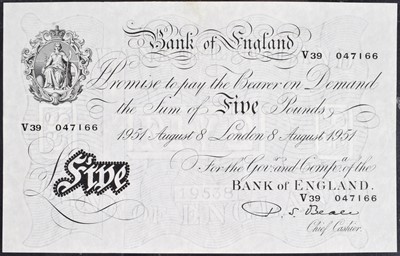 Bank of England
V39 047166
I Promise to pay the Bearer on Demand
the Sum of Five Pounds
V39 047166
1951 August 8 London 8 August 1951
For the Gov.r and Comp.a of the
Five
BANK OF ENGLAND.
V39 047166
P. S. Beale
Chief Cashier.